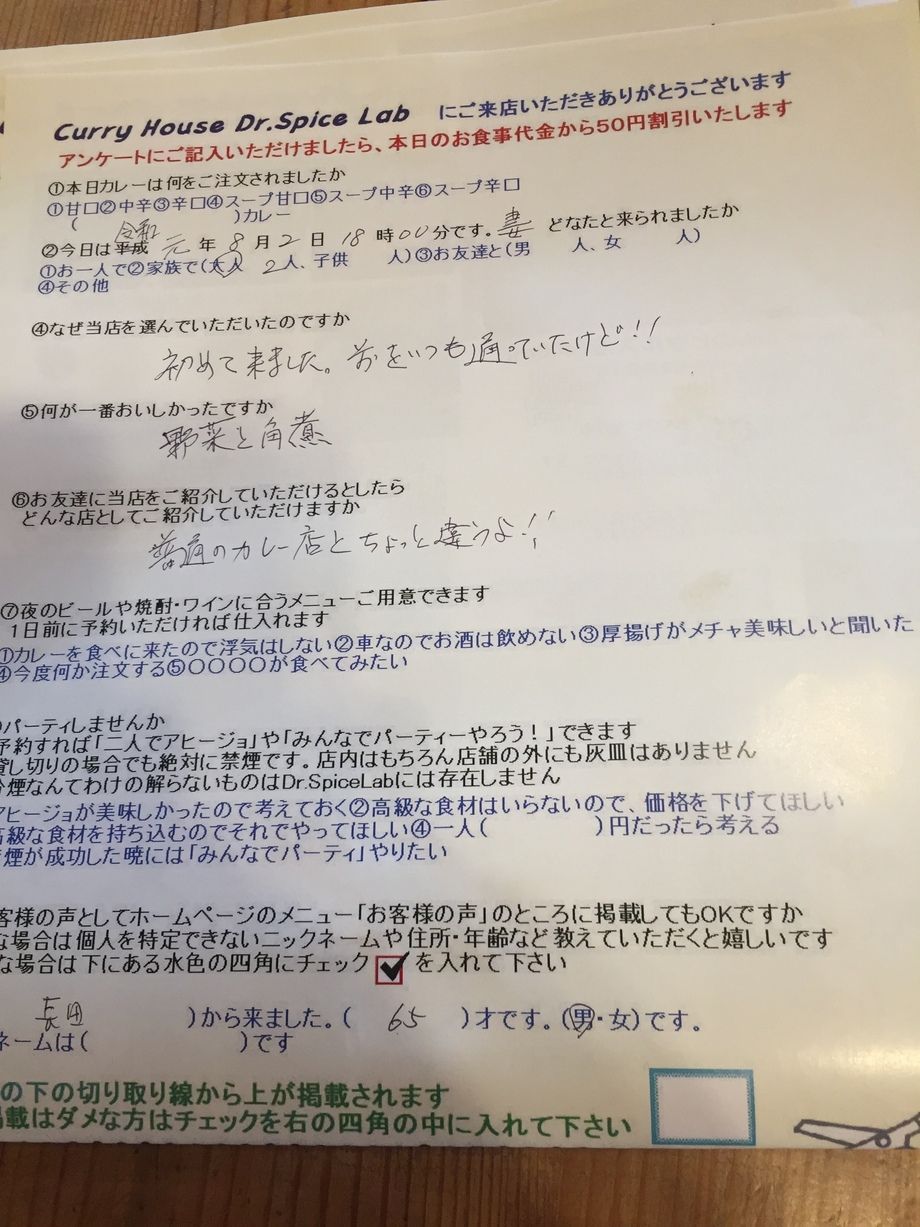 Curry House Dr.Spice Lab にご来店いただきありがとうございます
アンケートにご記入いただけましたら、本日のお食事代金から50円割引いたします
①本日カレーは何をご注文されましたか
①甘口②中辛③辛口④スープ甘口⑤スープ中辛⑥スープ辛口
( )カレー
令和 妻
②今日は平成 元 年 8 月 2 日 18 時 00 分です。 どなたと来られましたか
①お一人で②家族で(大人 2 人、子供 人)③お友達と(男 人、女 人)
④その他
④なぜ当店を選んでいただいたのですか
初めて来ました。前をいつも通っていたけど!!
⑤何が一番おいしかったですか
野菜と角煮
⑥お友達に当店をご紹介していただけるとしたら
どんな店としてご紹介していただけますか
普通のカレー店とちょっと違うよ!!
⑦夜のビールや焼酎・ワインに合うメニューご用意できます
1日前に予約いただければ仕入れます
①カレーを食べに来たので浮気はしない②車なのでお酒は飲めない③厚揚げがメチャ美味しいと聞いた
④今度何か注文する⑤〇〇〇〇が食べてみたい
パーティしませんか
予約すれば「二人でアヒージョ」や「みんなでパーティーやろう!」できます
貸し切りの場合でも絶対に禁煙です。店内はもちろん店舗の外にも灰皿はありません
煙なんてわけの解らないものはDr.SpiceLabには存在しません
アヒージョが美味しかったので考えておく②高級な食材はいらないので、価格を下げてほしい
高級な食材を持ち込むのでそれでやってほしい④一人( )円だったら考える
煙が成功した暁には「みんなでパーティ」やりたい
客様の声としてホームページのメニュー「お客様の声」のところに掲載してもOKですか
な場合は個人を特定できないニックネームや住所・年齢など教えていただくと嬉しいです
な場合は下にある水色の四角にチェック を入れて下さい
長田 )から来ました。( 65 )才です。(男・女)です。
ネームは( )です
の下の切り取り線から上が掲載されます
掲載はダメな方はチェックを右の四角の中に入れて下さい